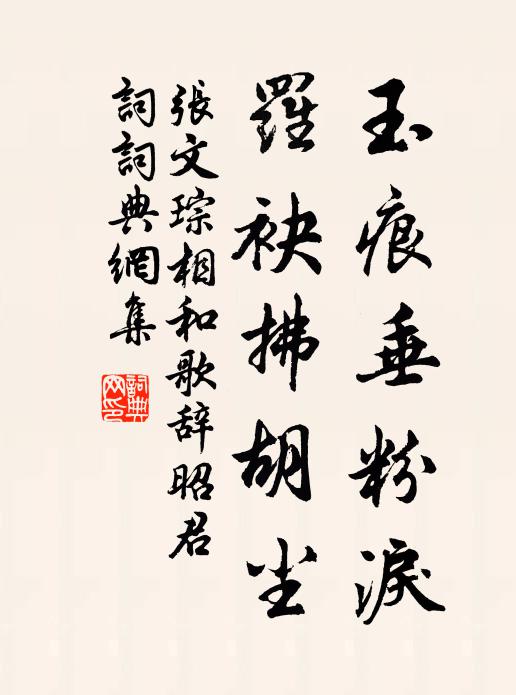 玉痕垂粉淚
羅袂拂胡尘
張文琮相和歌辞昭君
詞詞典網集
詞典
网印